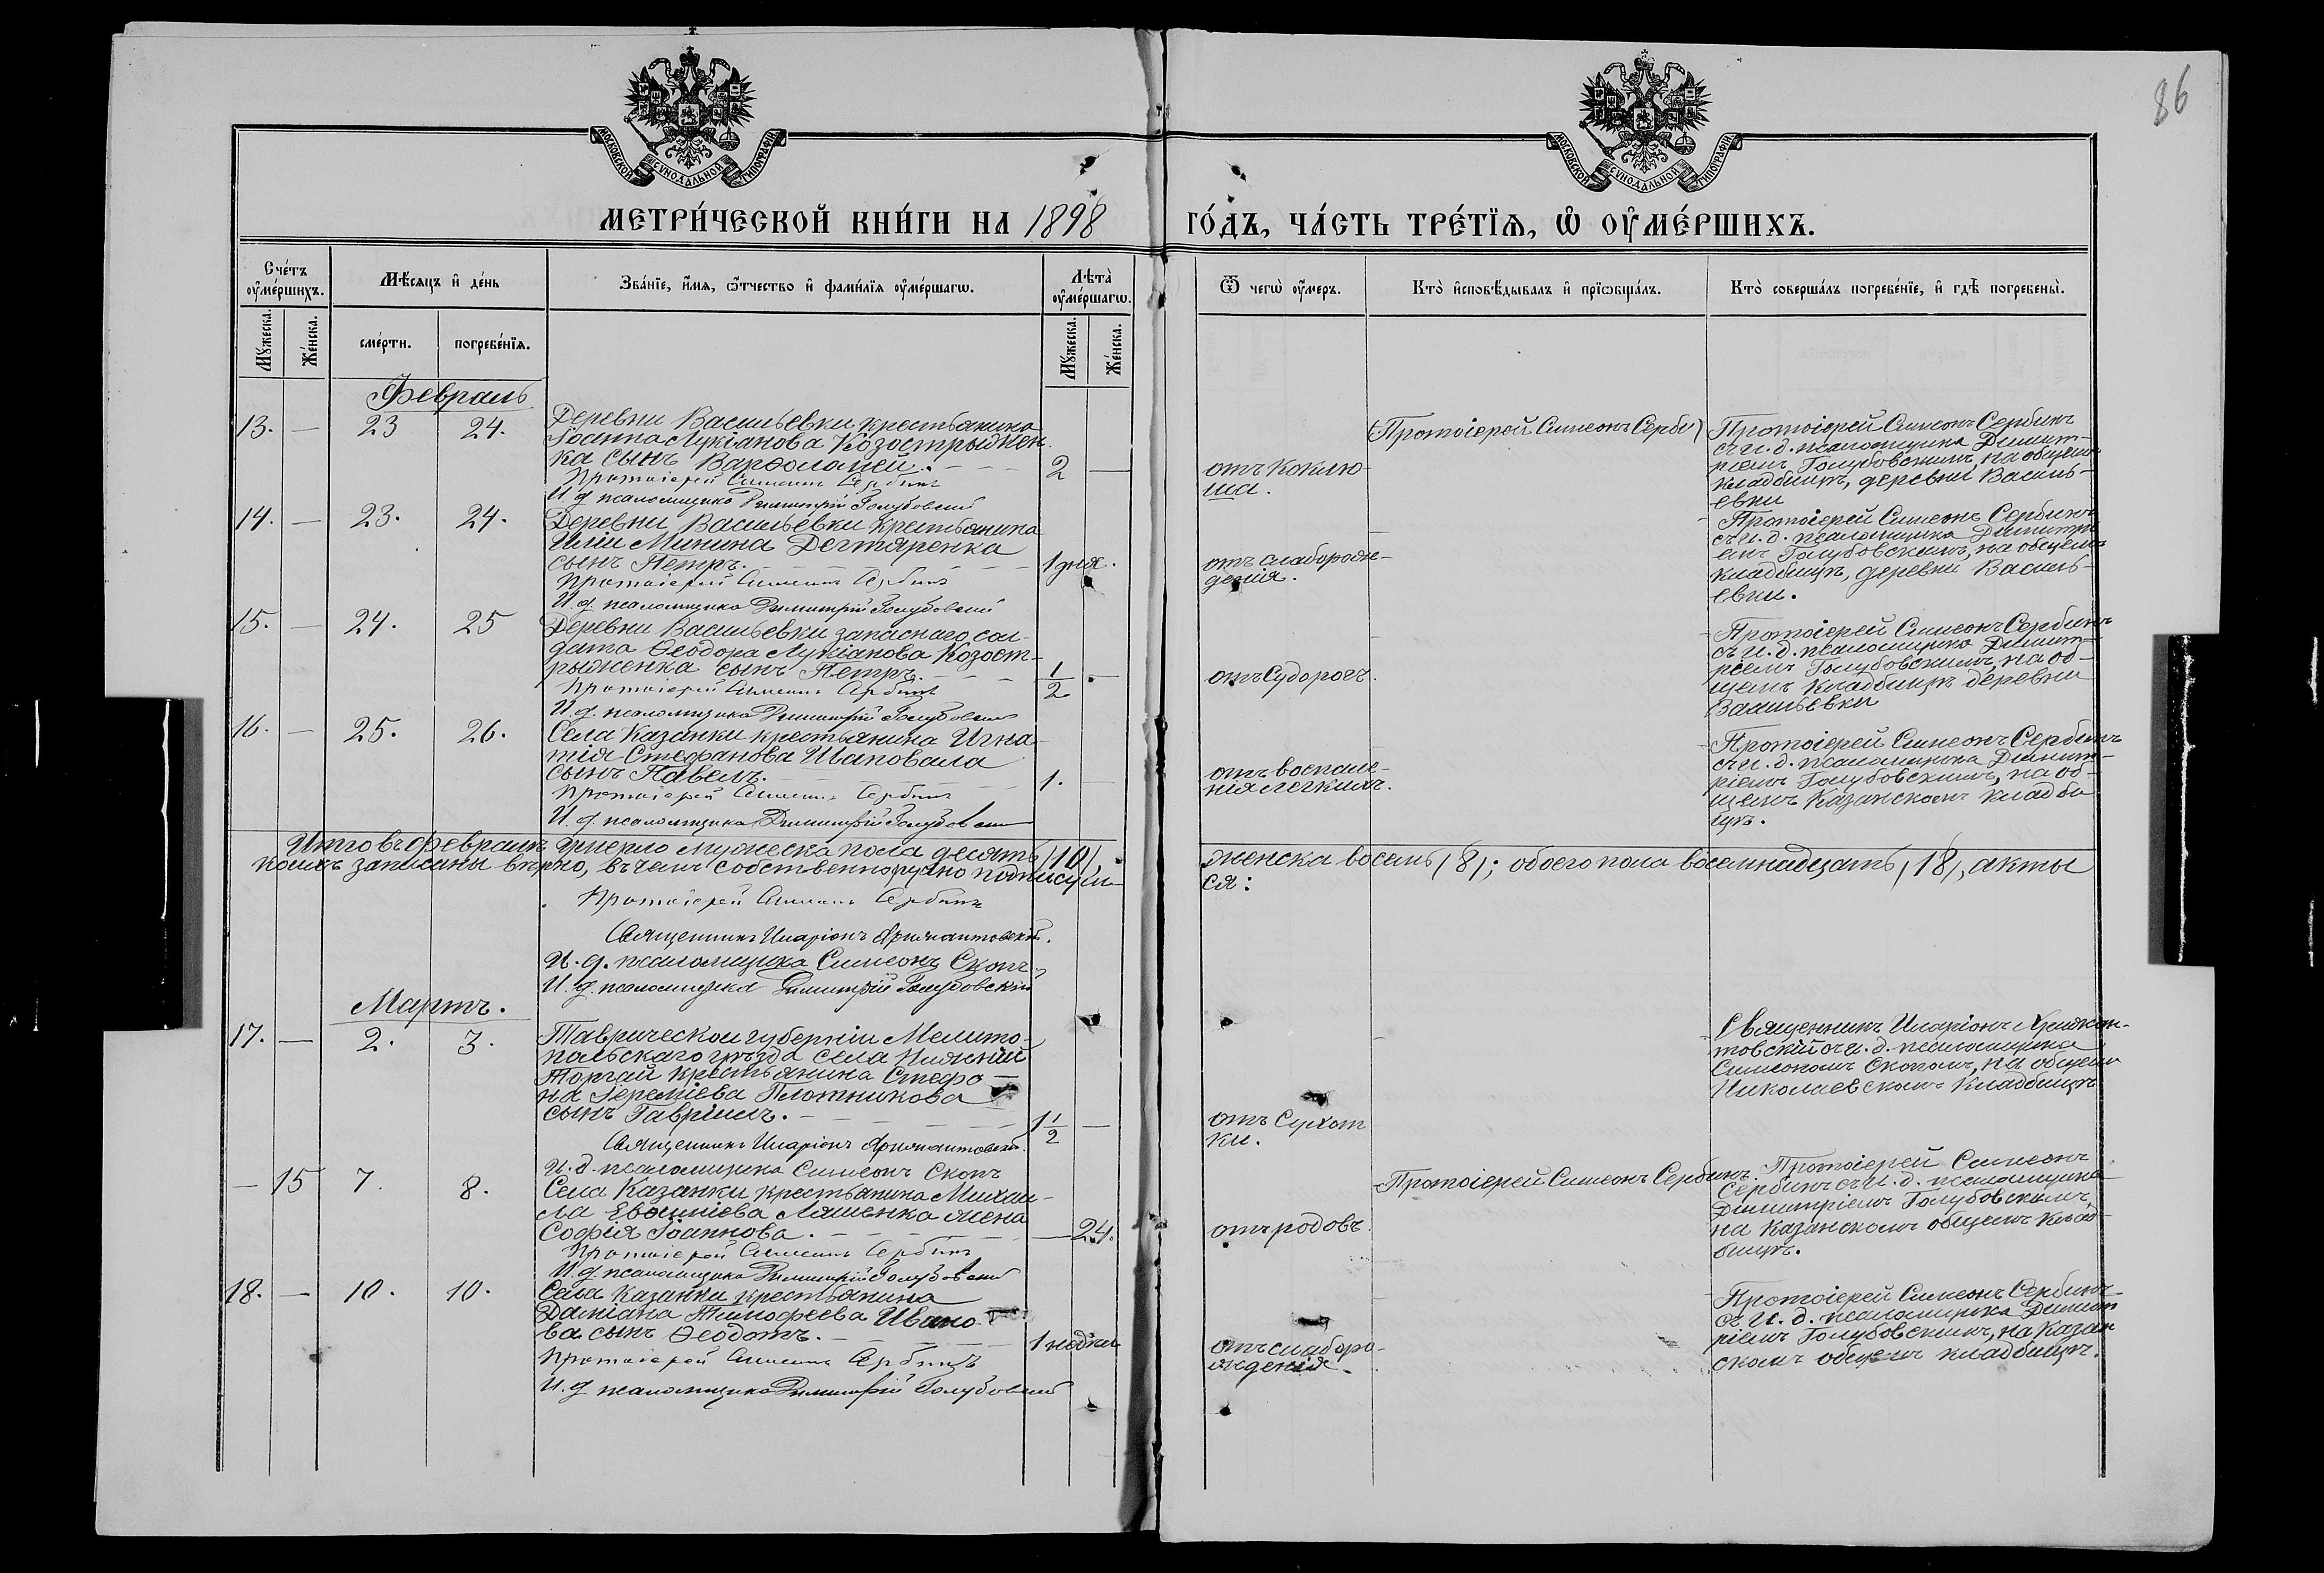 86
МОСКОВСКОЙ СУНОДАЛЬНОЙ ТИПОГРАФІИ
МОСКОВСКОЙ СУНОДАЛЬНОЙ ТИПОГРАФІИ
МЕТРИ́ЧЕСКОЙ КНИ́ГИ НА 1898 ГО́ДЪ, ЧА́СТЬ ТРЕ́ТЇѦ, Ѡ҆ ОУ҆МЕ́РШИХЪ.
Сче́тъ оу҆ме́ршихъ.
Мꙋ́жеска.
Же́нска.
Мѣ́сяцъ и҆ де́нь
сме́рти.
погребе́нїя.
Зва́нїе, и҆́мя, ѻ҆́тчество и҆ фами́лїя оу҆ме́ршагѡ.
Лѣта̀ оу҆ме́ршагѡ.
Мꙋ́жеска.
Же́нска.
Ѿ чегѡ̀ оу҆́меръ.
Кто̀ и҆сповѣ́дывалъ и҆ прїѡбща́лъ.
Кто̀ соверша́лъ погребе́нїе, и҆ гдѣ̀ погребены̀.
Февраль
13. — 23 24.
Деревни Васильевки крестьянина
Іоанна Лукіанова Козострыжен
ка сынъ Варѳоломей. 2 —
Протоіерей Симеонъ Сербинъ
И. д. псаломщика Димитрій Голубовскій
отъ коклю
ша.
Протоіерей Симеонъ Серби
Протоіерей Симеонъ Сербинъ
съ и. д. псаломщика Димит-
ріемъ Голубовскимъ, на общемъ
кладбищѣ, деревни Василь-
евки
14. — 23. 24.
Деревни Васильевки крестьянина
Иліи Минина Дегтяренка
сынъ Петръ. 1 дня.
Протоіерей Симеонъ Сербинъ
И. д. псаломщика Димитрій Голубовскій
отъ слаборож-
денія.
Протоіерей Симеонъ Сербинъ
съ и. д. псаломщика Димитрі
емъ Голубовскимъ, на общемъ
кладбищѣ, деревни Василь-
евки.
15. — 24. 25
Деревни Васильевки запаснаго сол-
дата Ѳеодора Лукіанова Козост-
рыженка сынъ Петръ. 1/2 —
Протоіерей Симеонъ Сербинъ
И. д. псаломщика Димитрій Голубовскій
отъ судорогъ.
Протоіерей Симеонъ Сербинъ
съ и. д. псаломщика Димит-
ріемъ Голубовскимъ, на об-
щемъ кладбищѣ деревни
Васильевки
16. — 25. 26.
Села Казанки крестьянина Игна-
тія Стефанова Шаповала
сынъ Павелъ. 1. —
Протоіерей Симеонъ Сербинъ
И. д. псаломщика Димитрій Голубовскій
отъ воспале-
нія легкихъ.
Протоіерей Симеонъ Сербинъ
съ и. д. псаломщика Димит-
ріемъ Голубовскимъ, на об-
щемъ Казанскомъ кладби
щѣ.
Итого въ февралѣ умерло мужеска пола десять (10), женска восемь (8); обоего пола восемнадцать (18), акты
коихъ записаны вѣрно, въ чемъ собственноручно подписуем-
ся:
Протоіерей Симеонъ Сербинъ
Священникъ Иларіонъ
И. д. псаломщика Симеонъ Скопъ
И. д. псаломщика Димитрій Голубовскій
Мартъ.
17. — 2. 3.
Таврической губерніи Мелито-
польскаго уѣзда села Нижній
Торгай крестьянина Стефа-
на Іереміева Плотникова
сынъ Гавріилъ. 1 1/2 —
Священникъ Иларіонъ
И. д. псаломщика Симеонъ Скопъ
отъ сухот
ки.
Священникъ Иларіонъ
съ и. д. псаломщика
Симеономъ Скопомъ, на общемъ
Николаевскомъ кладбищѣ
— 15 7. 8.
Села Казанки крестьянина Михаи-
ла Евѳиміева Ляшенка жена
Софія Іоаннова. — 24.
Протоіерей Симеонъ Сербинъ
И. д. псаломщика Димитрій Голубовскій
отъ родовъ.
Протоіерей Симеонъ Сербинъ.
Протоіерей Симеонъ
Сербинъ съ и. д. псаломщика
Димитріемъ Голубовскимъ,
на Казанскомъ общемъ клад-
бищѣ.
18. — 10. 10.
Села Казанки крестьянина
Даміана Тимофеева Ивано-
ва сынъ Ѳеодотъ. 1 недѣли
Протоіерей Симеонъ Сербинъ
И. д. псаломщика Димитрій Голубовскій
отъ слаборо-
жденія.
Протоіерей Симеонъ Сербинъ
съ и. д. псаломщика Димит
ріемъ Голубовскимъ, на Казан
скомъ общемъ кладбищѣ.